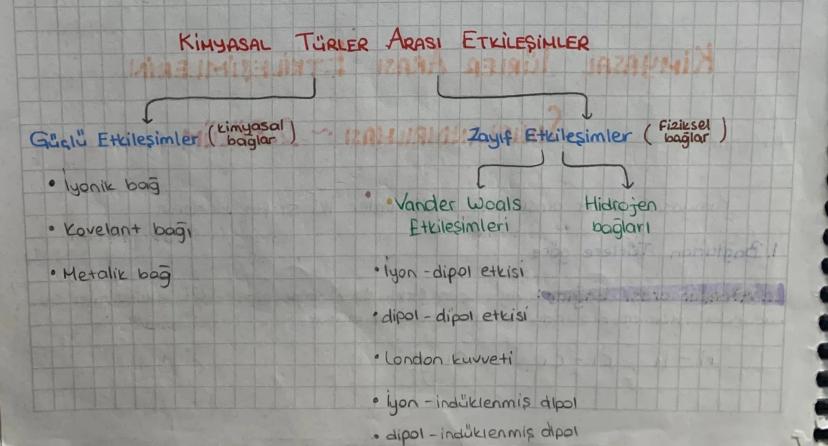 KİMYASAL TÜRLER ARASI ETKİLEŞİMLER
Güçlü Etkileşimler (kimyasal bağlar)
• İyonik bağ
• Kovelant bağı
• Metalik bağ
Zayıf Etkileşimler (fiziksel bağlar)
• Vander Woals
Etkileşimleri
Hidrojen
bağları
• İyon - dipol etkisi
• dipol - dipol etkisi
• London kuvveti
• İyon - indüklenmiş dipol
• dipol - indüklenmiş dipol